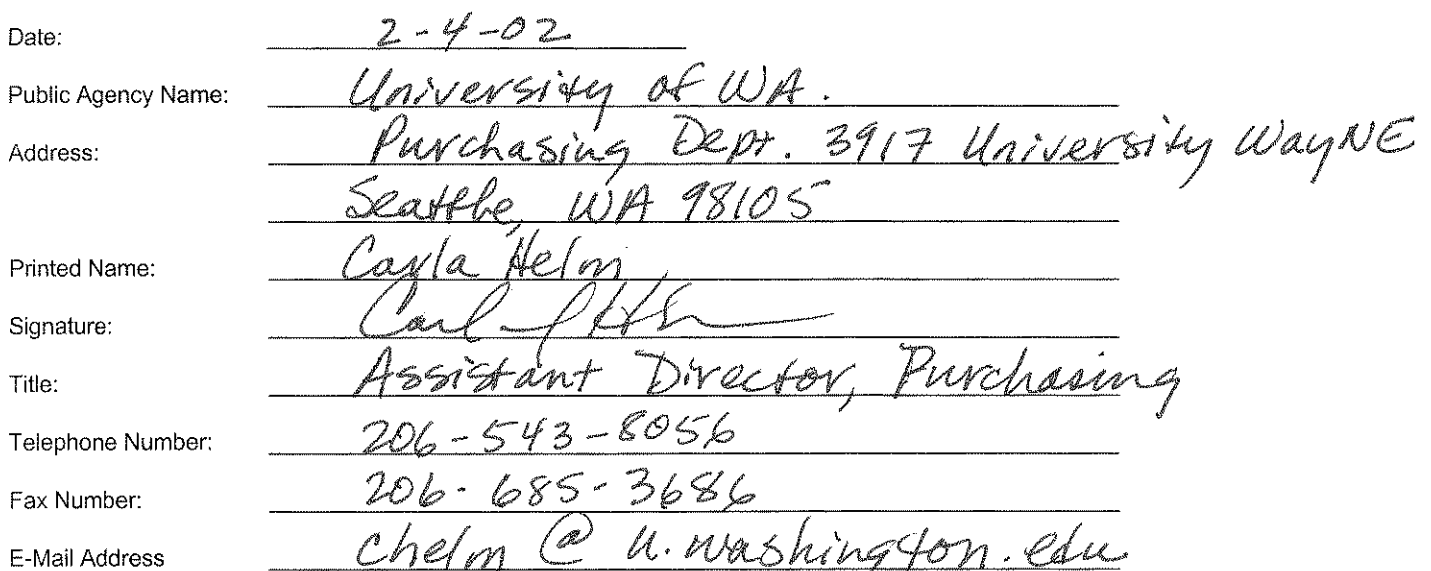 Date: 2-4-02
Public Agency Name: University of WA.
Address: Purchasing Dept. 3917 University Way NE
Seattle, WA 98105
Printed Name: Carla Helm
Signature:
Title: Assistant Director, Purchasing
Telephone Number: 206-543-8056
Fax Number: 206-685-3686
E-Mail Address chelm@u.washington.edu